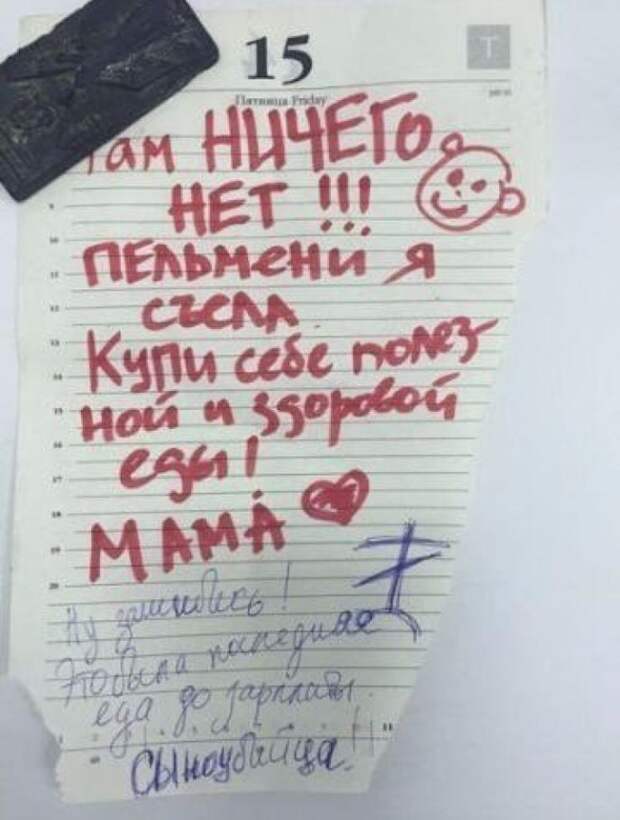 15
Т
Пятница Friday
Там НИЧЕГО
НЕТ !!!
ПЕЛЬМЕНИ Я
СЪЕЛА
Купи себе полез-
ной и здоровой
еды!
МАМА
Ну зашибись!
Это была последняя
еда до зарплаты.
Сыноубийца!!